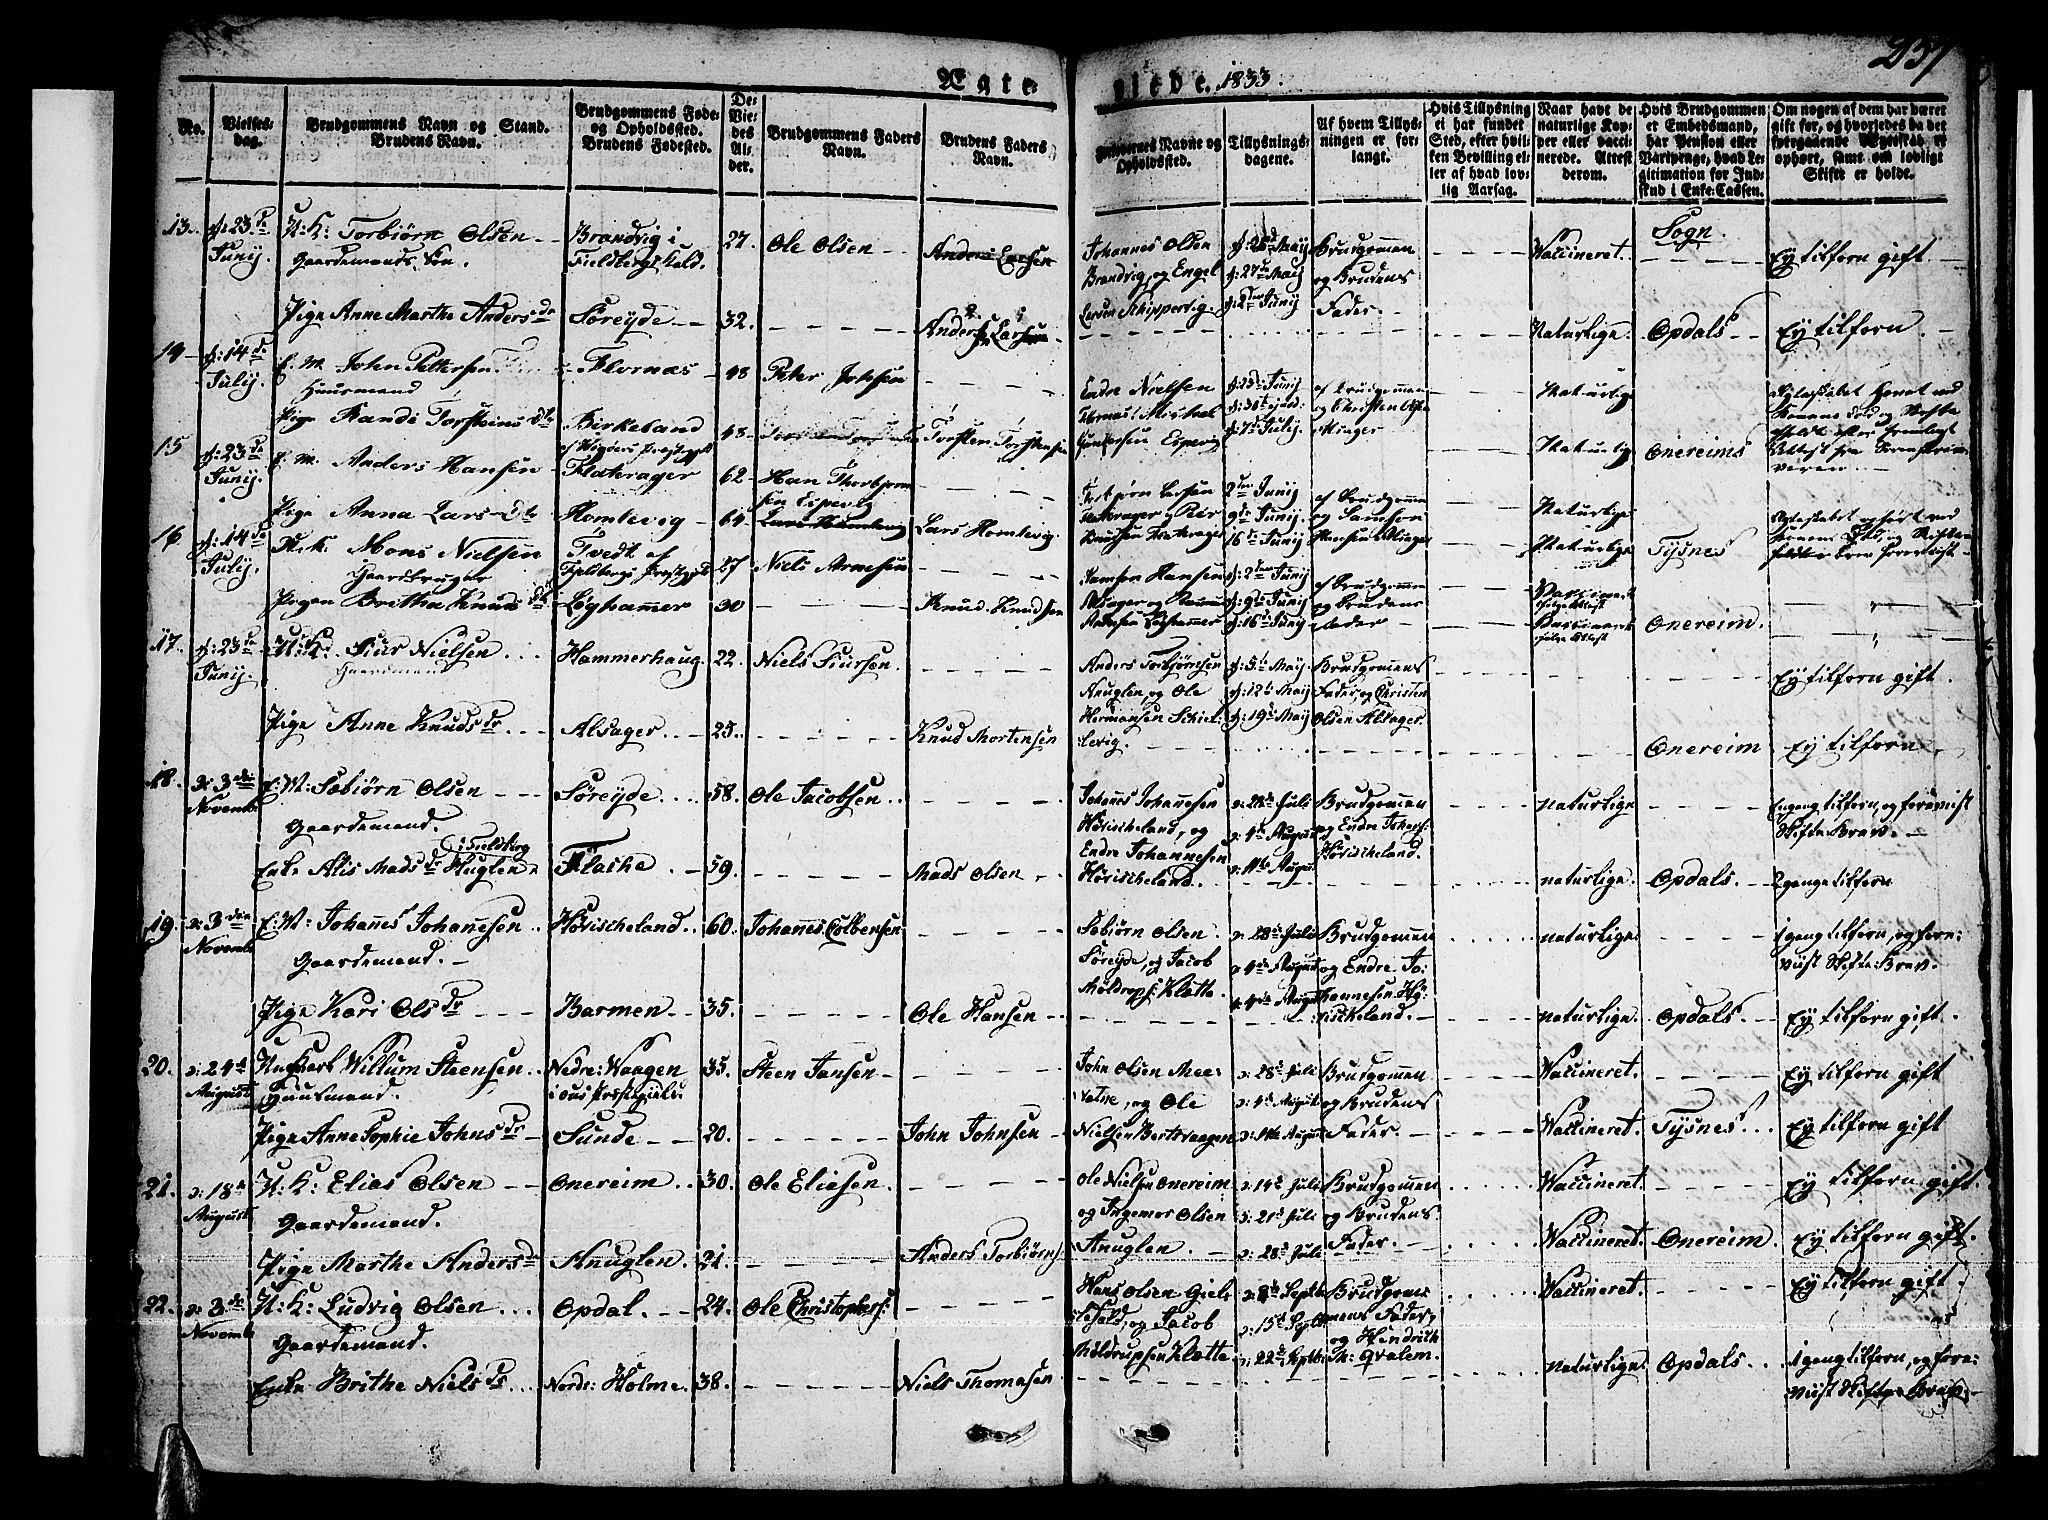 Ægte
viede. 1833.
237
No.
Vielses-
dag.
Brudgommens Navn og Stand.
Brudens Navn.
Brudgommens Føde-
og Opholdssted.
Brudens Fødested.
De
Vie-
des
Al-
der.
Brudgommens Faders
Navn.
Brudens Faders
Navn.
Forlovernes Navne og
Opholdssted.
Tillysnings-
dagene.
Af hvem Tillys-
ningen er for-
langt.
Hvis Tillysning
ei har fundet
Sted, efter hvil-
ken Bevilling el-
ler af hvad lov-
lig Aarsag.
Naar havt de
naturlige Kop-
per eller vacci-
nerede. Attest
derom.
Hvis Brudgommen
er Embedsmand,
har Pension eller
Vartpenge, hvad Le-
gitimation for Ind-
skud i Enke-Cassen.
Om nogen af dem har været
gift før, og hvorledes da det
foregaaende Ægteskab er
ophørt, samt om lovligt
Skifte er holdt.
13. d: 23de Junij. U: K: Torbiørn Olsen Gaardemands Søn. Brandvig i Fieldberg 27 Ole Olsen
Johannes Olsen Brandvig, og Engel Larsen Skippervig. d: 27de Maij d: 2den Junij Brudgommen og Brudens Fader. Vaccineret. Sogn. Ey tilforn gift
Pige Anne Marthe Andersdr Søreyde 32. Anders Larsen Naturlige. Opdals Ey tilforn.
14 d: 14de Julij. E. M. John Pettersen Huusmand Flornæs 48 Peter
Endre Nielsen d: 7de Julij. af Brudgommen og Christen Olsen Naturlige
Pige Randi Torsteinsdtr Birkeland 48 Torsten Torstensen Naturlig Onereims
15 d: 23de Junij. E. M. Anders Hansen Flakrager 62 Han Thorbjørnsen Espevig
Torbjørn Larsen Flakrager og Peer Knudsen Flakrager 2den Junij 9de Junij. 16de Junij af Brudgommen og Samson Hansen Alsager Naturlige
Pige Anna Larsdtr Homlevig 64 Lars Homlevig. Naturlige Tysnes
16 d: 14de Julij. U. K: Mons Nielsen Gaardbruger Tvedt af Fjeldbergs Præstegjeld 27 Niels Arnesen
Samson Hansen Alsager og Rasmus Andersen Løghammer d: 2den Junij d: 9de Junij d: 16de Junij af Brudgommen og Brudens Fader Vaccineret
Pigen Britha Knudsdtr Løghammer 30 Knud Knudsen Vaccineret Onereim.
17. d: 23de Junij. U: K: Siur Nielsen Gaardmand Hammerhaug 22. Niels Siursen
Anders Torbjørnsen Anuglen, og Ole Hermansen Schiel-levig. d: 5te Maij. d: 12te Maij d: 19de Maij Brudgommens Fader, og Christen Olsen Alsager. Ey tilforn gift.
Pige Anne Knudsdr Alsager. 25. Knud Mortensen Onereim Ey tilforn
18. D: 3die Novemb: E: M: Sæbiørn Olsen Gaardemand. Søreyde. 58. Ole Jacobsen
Johanes Johanesen Høvischeland, og Endre Johannesen Høvischeland. D: 28de Juli D: 4de August D: 11te August Brudgommen og Endre Johans: Høvischeland. naturlige Engang tilforn, og foreviist Skifte-Brev.
Enke Alis Madsdr Huglen i Fieldberg Flache 59. Mads Olsen naturlige. Opdals. 2 gange tilforn
19. D: 3die Novemb: E: M: Johanes Johanesen Gaardemand. Høvischeland. 60. Johanes Colbensen
Sæbiørn Olsen Søreyde, og Jacob Møldrops: Kletta. D: 28de Juli D: 4de August Brudgommen og Endre Jo-hannesen Hø-vischeland. naturlige. 1 gang tilforn, og fore-viist Skifte-Brev.
Pige Kari Olsdr Barmen 35. Ole Hansen naturlige. Opdals. Ey tilforn gift.
20. D: 24de August Ungkarl Willum Steensen Huusmand. Nedre: Waagen i Præstegield. 35. Steen Jansen
John Olsen Mee-vatne, og Ole Nielsen Bertsvaagen D: 28de Juli D: 4de August D: 11te August Brudgommen og Brudens Fader. Vaccineret. Ey tilforn gift
Pige Anne Sophie Johnsdr Sunde 20. John Johnsen Vaccineret. Tysnes Ey tilforn gift
21. D: 18de August U: K: Elias Olsen Gaardemand. Onereim 30. Ole Eliesen.
Ole Nielsen Onereim og Ingemor Olsen Anuglen. D: 14de Juli D: 21de Juli D: 28de Juli Brudgommen og Brudens Fader. Vaccineret. Ey tilforn gift.
Pige Marthe Andersdr Anuglen. 21. Anders Torbiørns: Vaccineret. Onereim. Ey tilforn gift.
22. D: 3die Novemb: U: K: Ludvig Olsen Gaardemand. Opdal. 24. Ole Christophers:
Hans Olsen Giel-, og Jacob Møldrupsen Kletta D: 8de Septb D: 15de Septb D: 22de Septb Brudgom-mens Fader, og Hindrich Gralem. Vaccineret. Ey tilforn gift.
Enke Brithe Nielsdr Nordr: Holme. 38. Niels Thomasen naturlige. Opdals. 1 gang tilforn, og fore-viist Skifte-Brev.